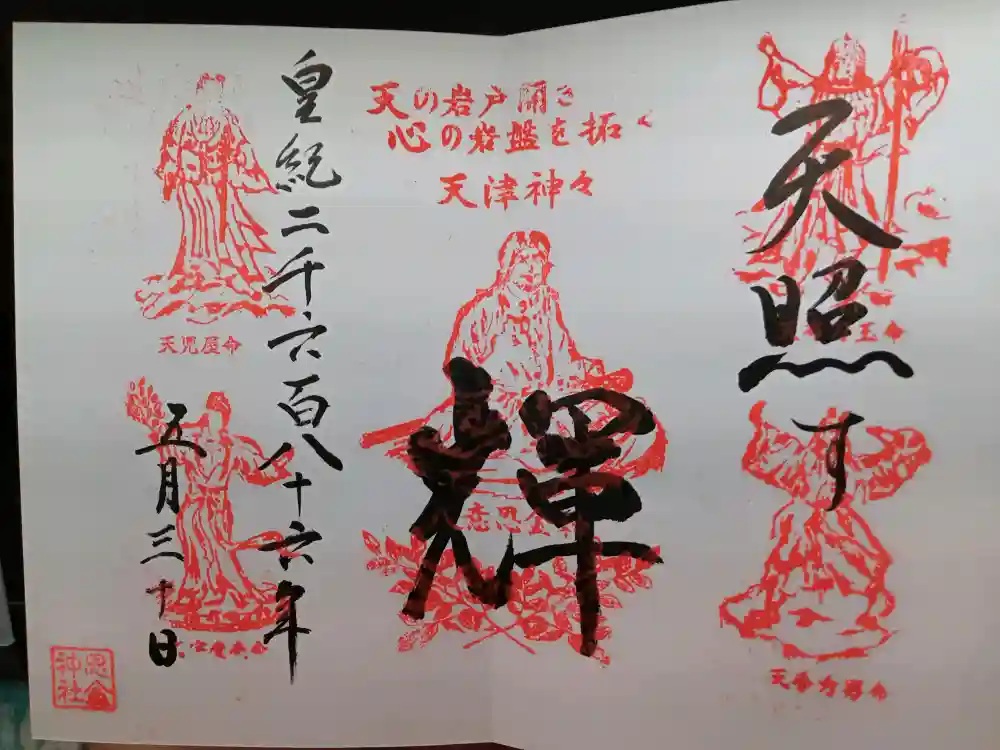 天照す
天手力男命
天の岩戸開き
心の岩盤を拓く
天津神々
輝
皇紀二千六百八十六年
五月三十日
天児屋命
思金
神社